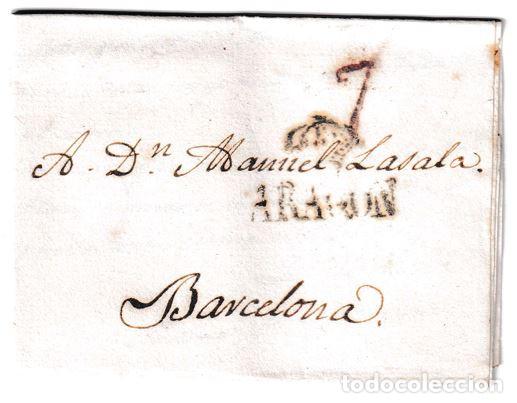 7
A. Dn. Manuel Lasala.
Barcelona.
todocoleccion